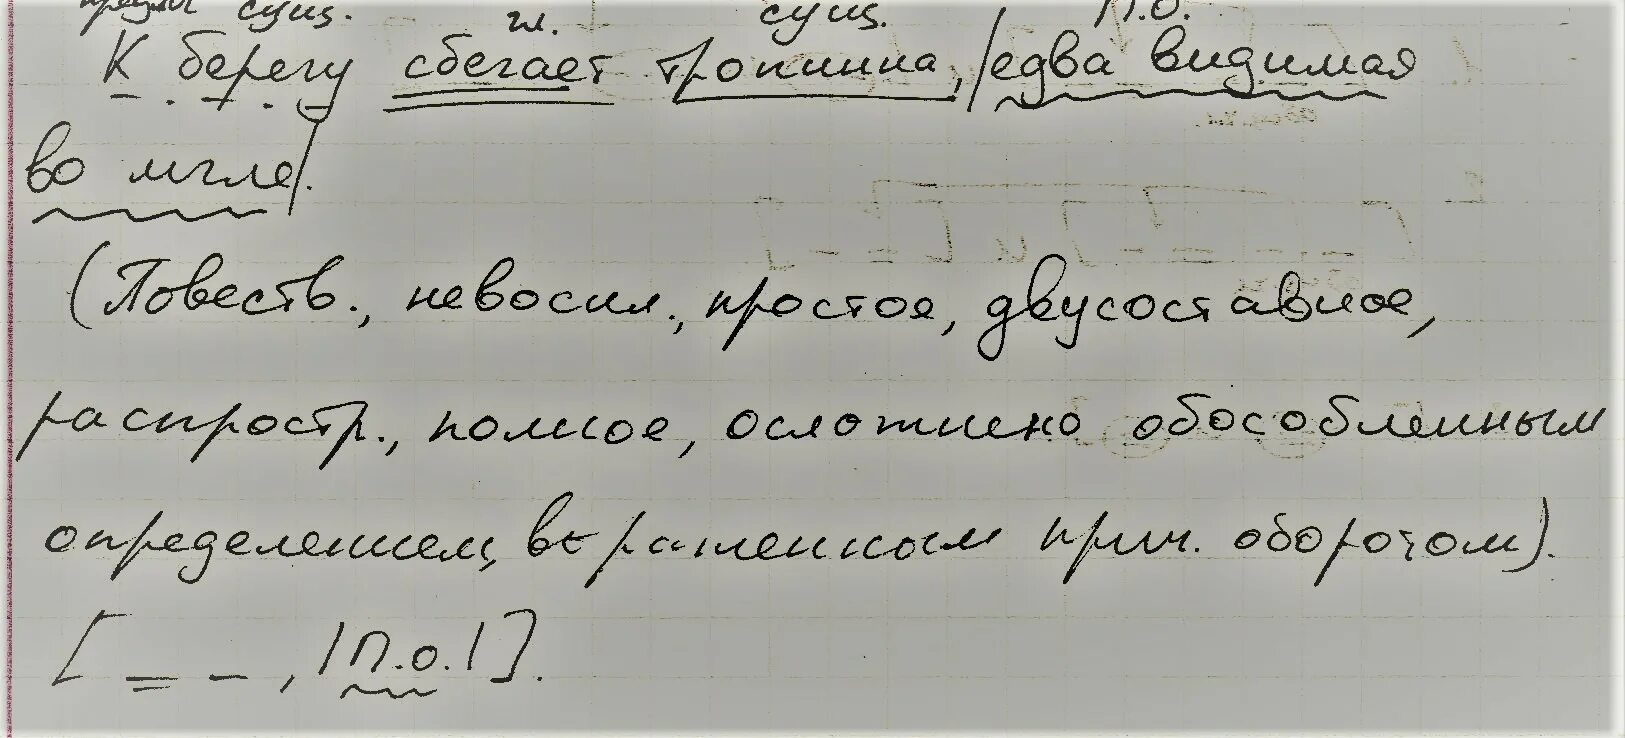 предлог сущ. гл. сущ. П.О.
К берегу сбегает тропинка, |едва видимая
во мгле|.
(Повеств., невоскл., простое, двусоставное,
распростр., полное, осложнено обособленным
определением, выраженным прич. оборотом).
[ = – , |П.О.| ].